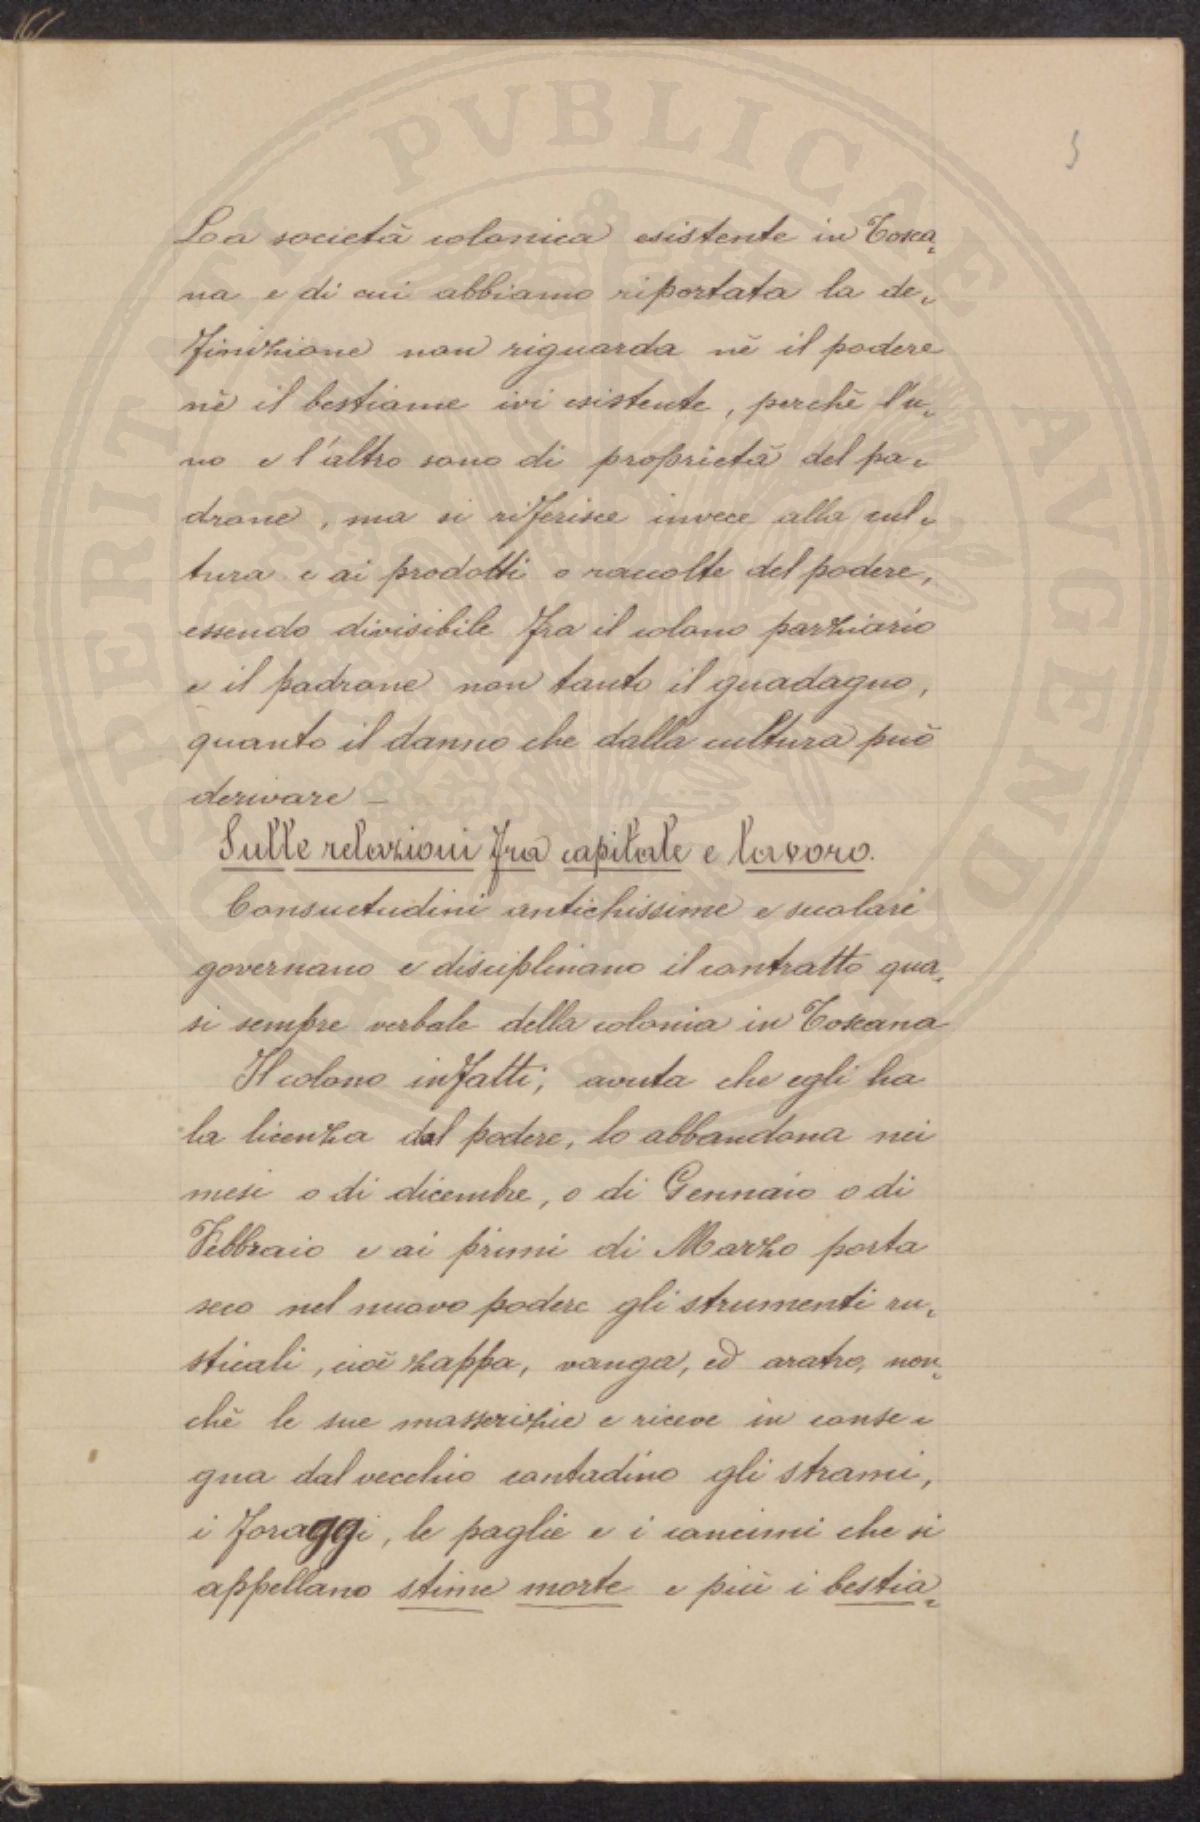 PROSPERITATI PVBLICAE AVGENDAE
5
La società colonica esistente in Tosca=
na e di cui abbiamo riportata la de=
finizione non riguarda nè il podere
nè il bestiame ivi esistente, perchè l'u=
no e l'altro sono di proprietà del pa=
drone, ma si riferisce invece alla cul=
tura e ai prodotti o raccolte del podere,
essendo divisibile fra il colono parziario
e il padrone non tanto il guadagno,
quanto il danno che dalla cultura può
derivare –
Sulle relazioni fra capitale e lavoro.
Consuetudini antichissime e secolari
governano e disciplinano il contratto qua=
si sempre verbale della colonia in Toscana
Il colono infatti; avuta che egli ha
la licenza dal podere, lo abbandona nei
mesi o di dicembre, o di Gennaio o di
Febbraio e ai primi di Marzo porta
seco nel nuovo podere gli strumenti ru=
sticali, cioè zappa, vanga, ed aratro, non=
chè le sue masserizie e riceve in conse=
gna dal vecchio contadino gli strami,
i foraggi, le paglie e i concimi che si
appellano stime morte e più i bestia=